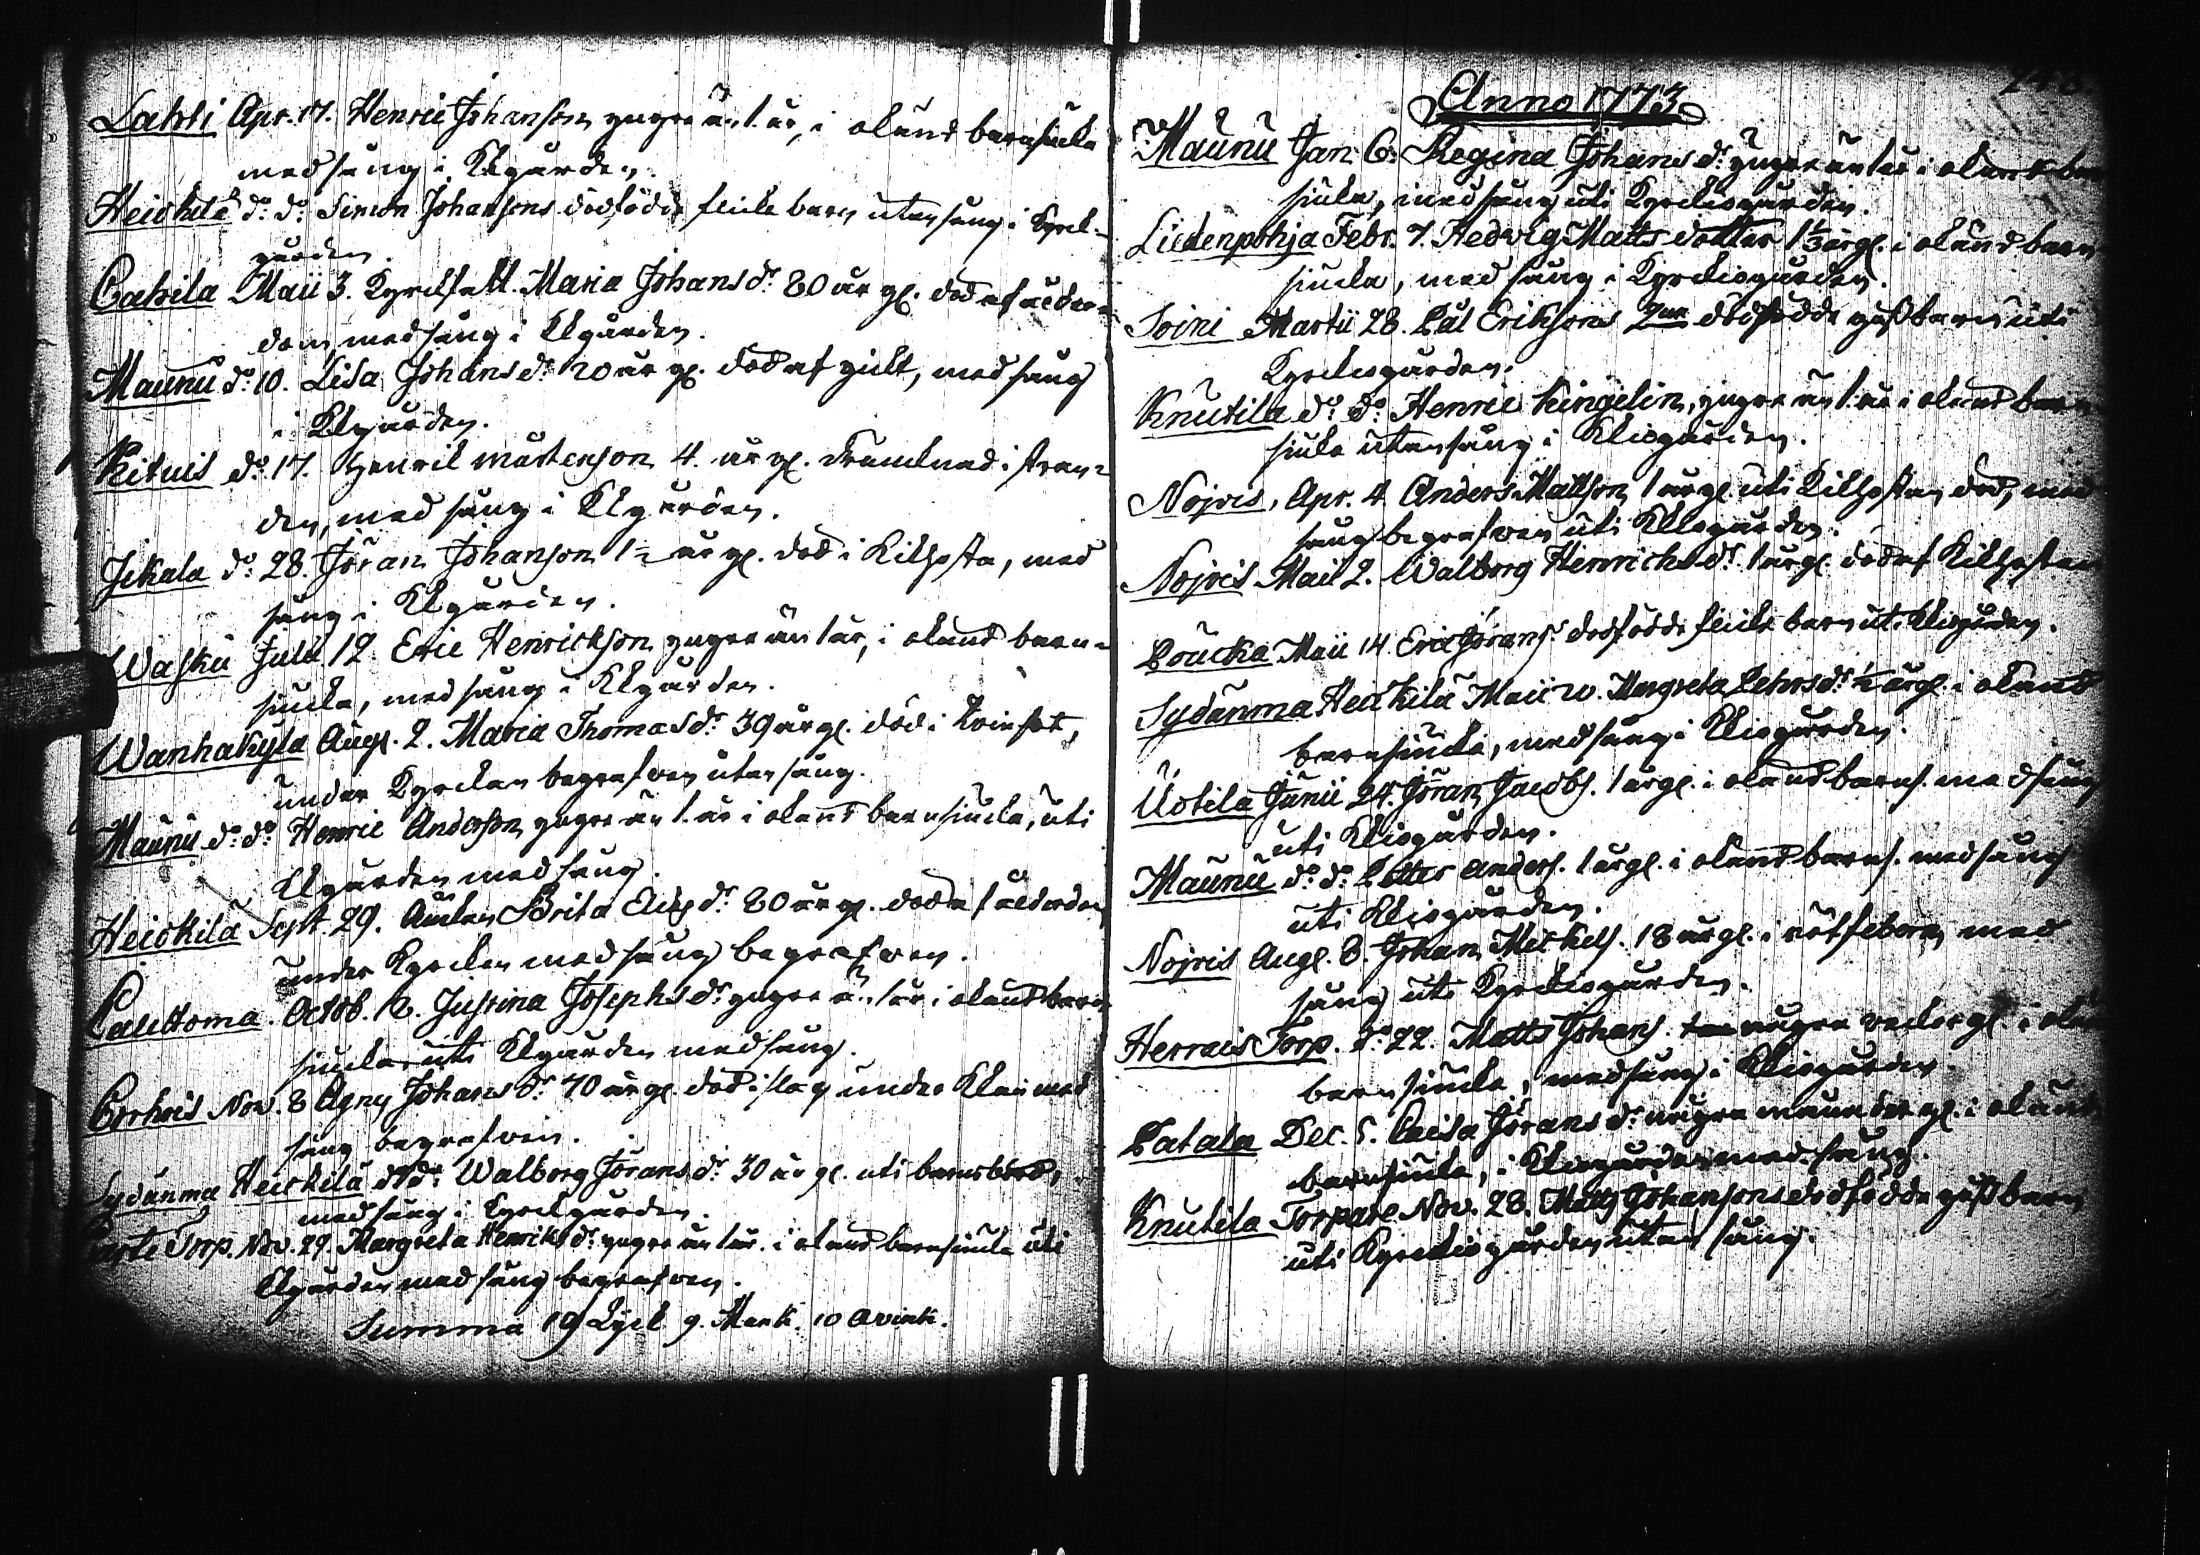 Lahti Apr. 17. Henric Johanson yngre än 1. år, i okänd barnsiuka
med sång i Kkgården.
Heickilä do: do: Simon Johansons dödfödde flicke barn utan sång i Kyrck-
gården.
Cahila Maii 3. Maria Johans dr: 80 år gl. död af ålder-
dom med sång i Kkgården.
Maunu do: 10. Lisa Johans dr: 20 år gl. död af gickt, med sång
i Kkgården.
Kituis do: 17. Henrik Mårtenson 4. år gl. drucknad i
med sång i Kkgården.
Jekala do: 28. Jöran Johanson 1 1/2 år gl. död i Kikhosta, med
sång i Kkgården.
Wasku Julii 12. Eric Henrickson yngre än 1 år, i okänd barn-
siucka, med sång i Kkgården.
Wanhakyla Aug. 2. Maria Thomas dr: 39 år gl. död i
under Kyrckan begrafwen utan sång.
Maunu do: do: Henric Anderson yngre än 1. år i okänd barnsiucka, uti
Kkgården med sång.
Heickilä Sept. 29. Änkan Brita dr: 80 år gl. död af ålderdom
under Kyrckan med sång begrafwen.
Octob. 12. Justina Josephs dr: yngre än 1 år i okänd barn
siucka uti Kkgården med sång.
Nov. 8 Agnes Johans dr: 70 år gl. död i slag under Kkan med
sång begrafwen.
Sydänma Heickilä do do: Walborg Jörans dr: 30 år gl. uti barnsbörd,
med sång i Kyrckgården.
Torp. Nov. 29. Margreta Henriks dr: yngre än 1 år. i okänd barnsiucka uti
Kkgården med sång begrafwen.
Summa 19 Lijck 9. Mank. 10 Qvink.
Anno 1773.
Maunu Jan. 6. Regina Johans dr: yngre än 1 år i okänd
siucka, med sång uti Kyrckiogården.
Liedenpohja Febr. 7. Hedvig Matts dotter 1 1/3 år gl. i okänd barn
siucka, med sång i Kyrckiogården.
Soini Martii 28. Pål Eriksons 2ne dödfödde goßbarn uti
Kyrckiogården.
Knutila do: do: Henric Kingelin, yngre än 1. år i okänd barn
siucka utan sång i Kkiogården.
Nojvis, Apr. 4 Anders Mattson 1 år gl. uti Kikhostan död, med
sång begrafwen uti Kkiogården.
Nojvis Maii 2. Walborg Henrichs dr: 1 år gl. död af Kikhostan
Poucka Maii 14. Eric Jörans dödfödde flicke barn uti Kkiogården.
Sydänma Heickilä Maii 20. Margreta Pehrs dr: 1/2 år gl. i okänd
barnsiucka, med sång i Kkiogården.
Uotila Junii 24. Jöran Jacobs. 1 år gl. i okänd barns. med sång
uti Kkiogården.
Maunu do: do: Petter Anders. 1 år gl. i okänd barns. med sång
uti Kkiogården.
Nojvis Aug. 8. Johan Mickels. 18 år gl. i rötfebern med
sång uti Kyrckiogården.
Herrais Torp. do: 22. Matts Johans. några weckor gl. i
barnsiucka, med sång i Kkiogården.
Patala Dec. 5. Caisa Jörans dr: några månader gl. i okänd
barnsiucka, i Kkiogården med sång.
Knutila Torpare Nov. 28. Matts Johansons dödfödde goßbarn
uti Kyrckiogården utan sång.